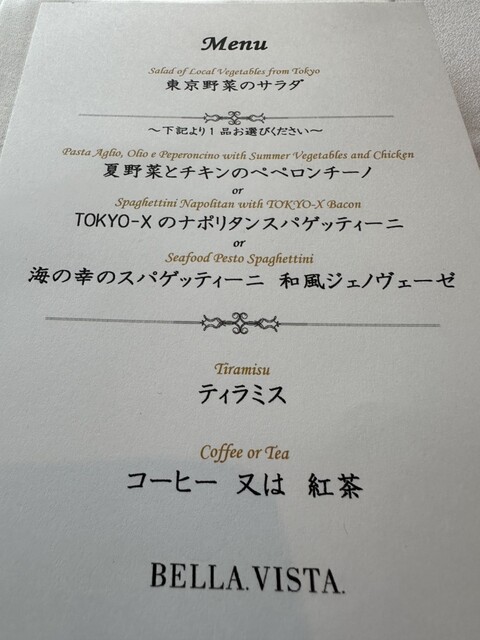 Menu
Salad of Local Vegetables from Tokyo
東京野菜のサラダ
～下記より1品お選びください～
Pasta Aglio, Olio e Peperoncino with Summer Vegetables and Chicken
夏野菜とチキンのペペロンチーノ
or
Spaghettini Napolitan with TOKYO-X Bacon
TOKYO-Xのナポリタンスパゲッティーニ
or
Seafood Pesto Spaghettini
海の幸のスパゲッティーニ 和風ジェノヴェーゼ
Tiramisu
ティラミス
Coffee or Tea
コーヒー 又は 紅茶
BELLA.VISTA.